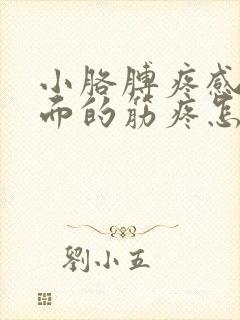 小胳膊疼感
而的筋疼怎
劉小五